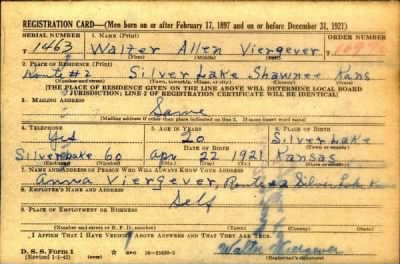 REGISTRATION CARD—(Men born on or after February 17, 1897 and on or before December 31, 1921)
SERIAL NUMBER 1. NAME (Print) ORDER NUMBER
1463 Walter Allen Viergever
(First) (Middle) (Last)
2. PLACE OF RESIDENCE (Print)
Route #2 Silver Lake Shawnee Kans
(Number and street) (Town, township, village, or city) (County) (State)
[THE PLACE OF RESIDENCE GIVEN ON THE LINE ABOVE WILL DETERMINE LOCAL BOARD
JURISDICTION; LINE 2 OF REGISTRATION CERTIFICATE WILL BE IDENTICAL]
3. MAILING ADDRESS
Same
[Mailing address if other than place indicated on line 2. If same insert word same]
4. TELEPHONE 5. AGE IN YEARS 6. PLACE OF BIRTH
Yes 20 Silver Lake
DATE OF BIRTH
Silver Lake 60 Apr 27 1921 Kansas
7. NAME AND ADDRESS OF PERSON WHO WILL ALWAYS KNOW YOUR ADDRESS
Anna Viergever, Route #2 Silver Lake Kans
8. EMPLOYER'S NAME AND ADDRESS
Self
9. PLACE OF EMPLOYMENT OR BUSINESS
(Number and street or R. F. D. number) (Town) (County) (State)
I AFFIRM THAT I HAVE VERIFIED ABOVE ANSWERS AND THAT THEY ARE TRUE.
D. S. S. Form 1
(Revised 1-1-42) GPO 16—21630-2 Walter Viergever